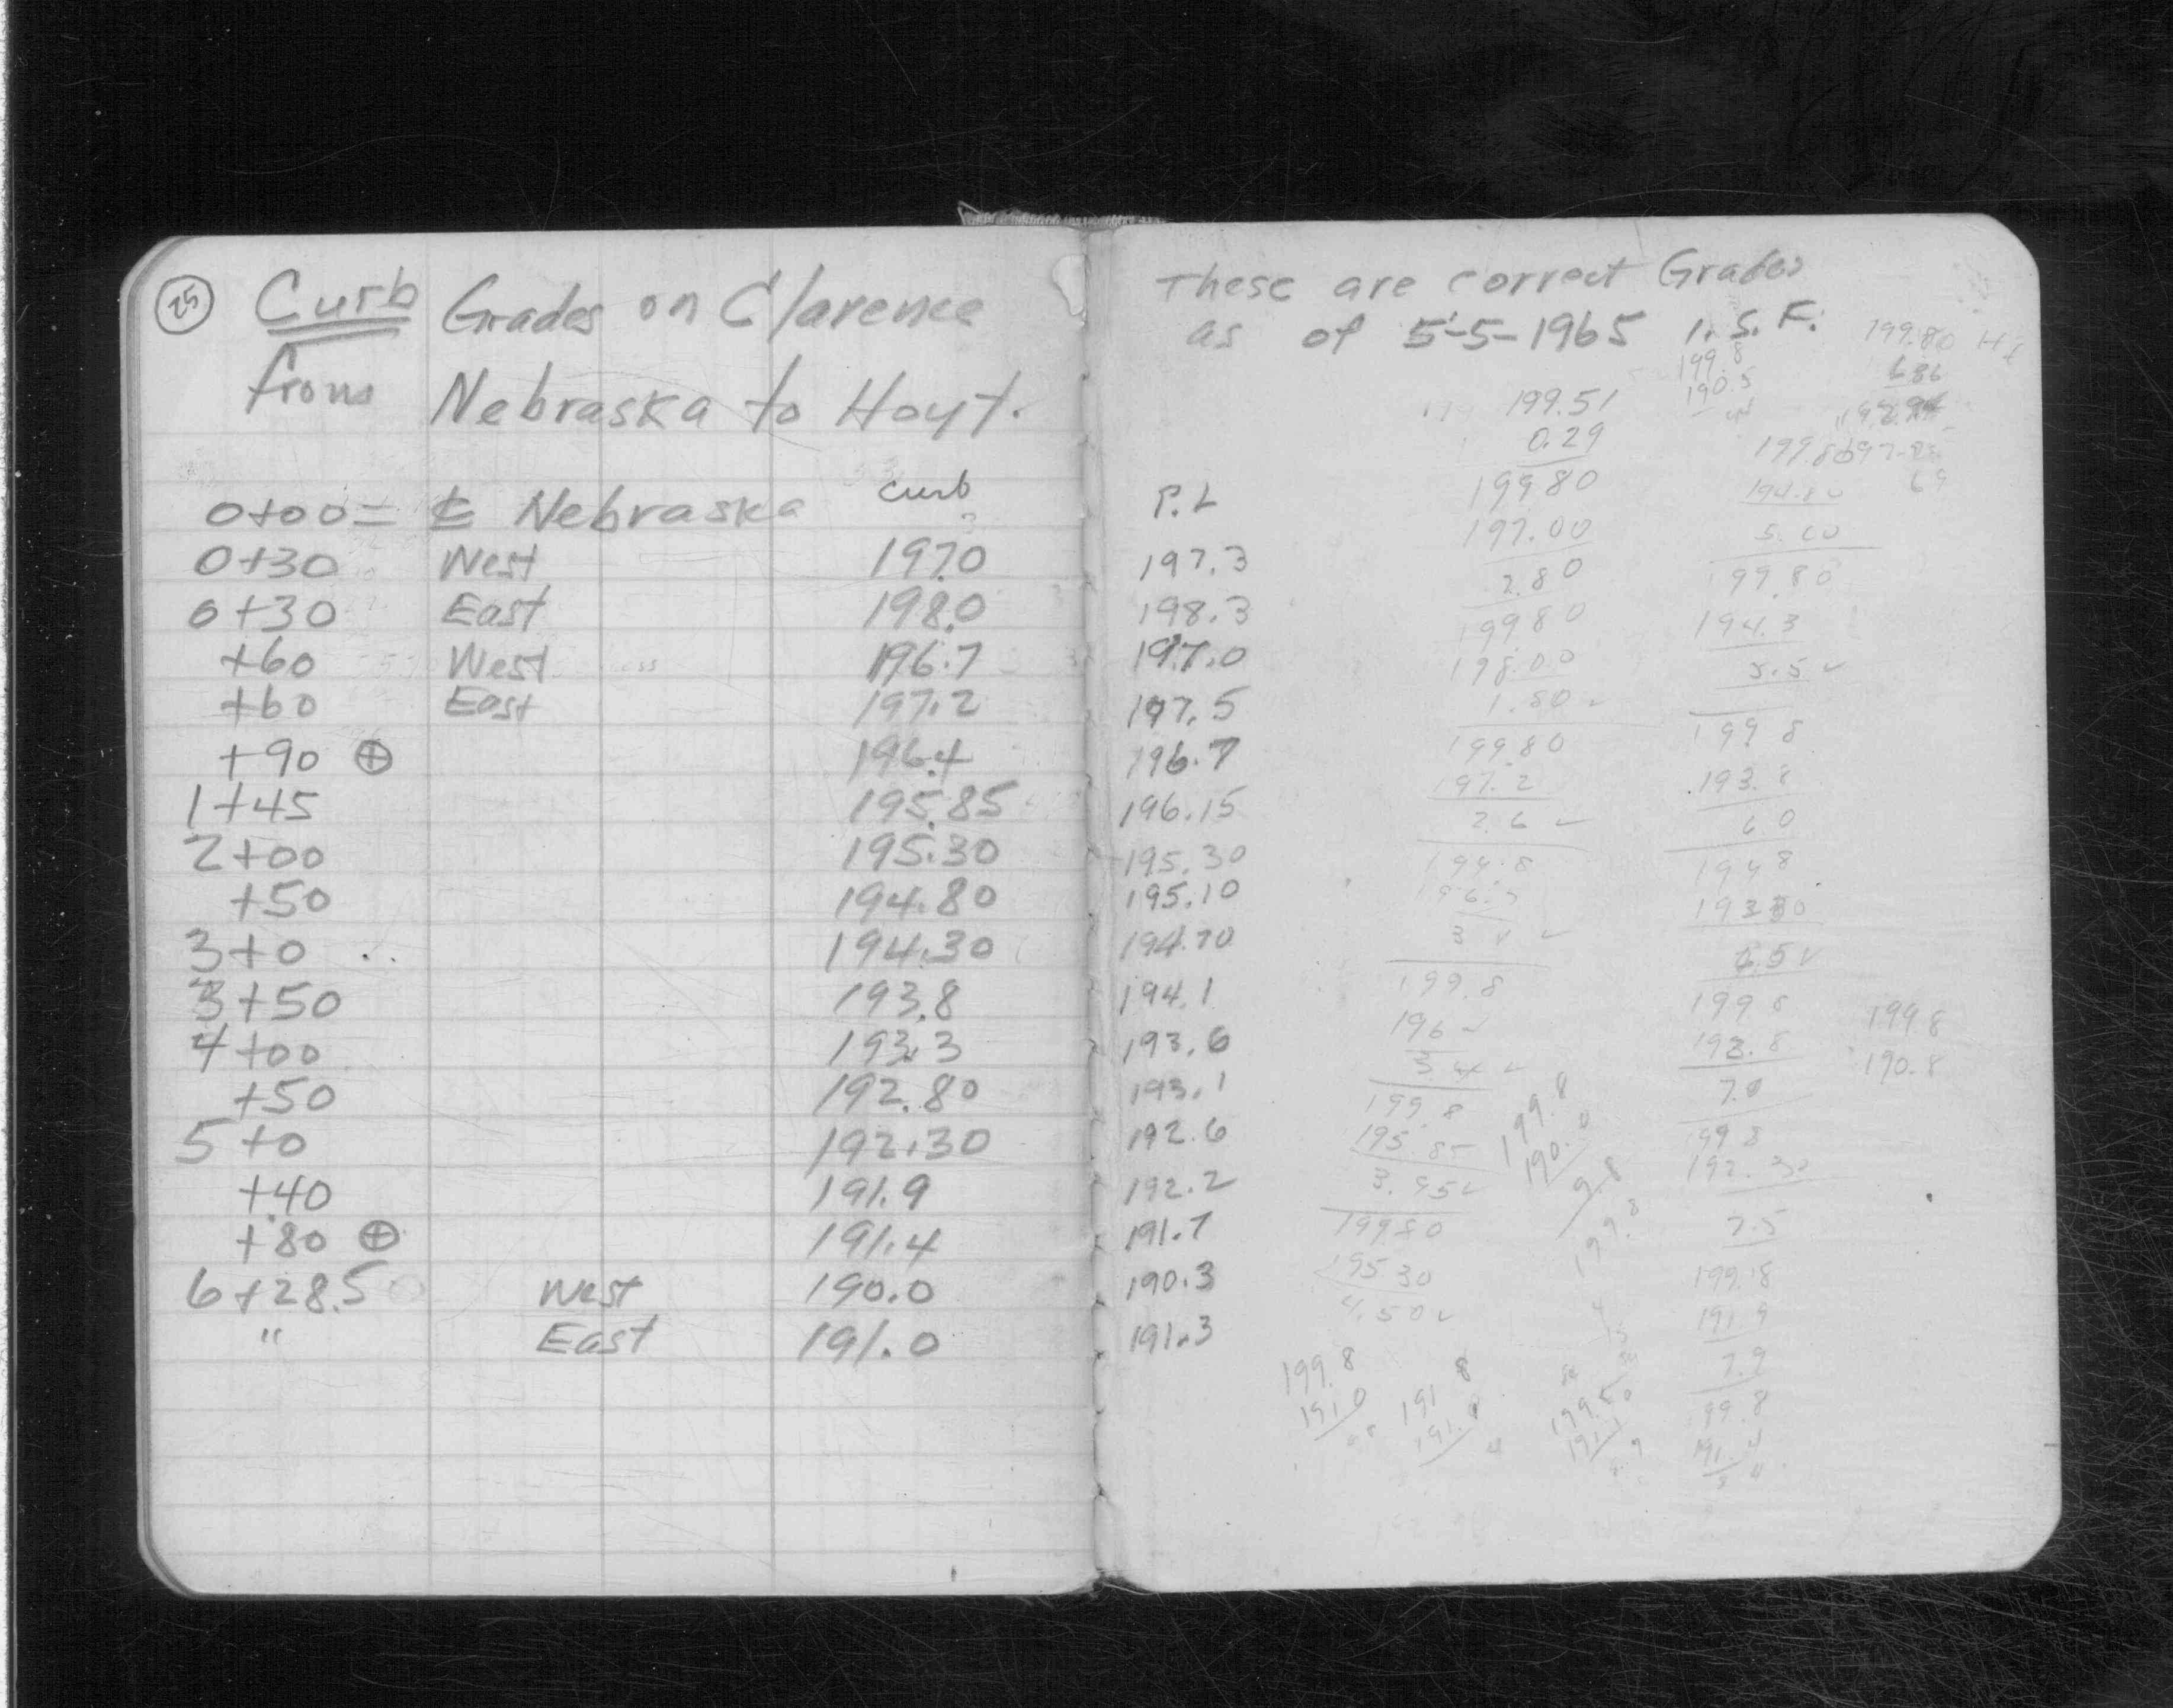 25
Curb Grades on Clarence
from Nebraska to Hoyt.
0+00 = ℄ Nebraska curb
0+30 West 197.0
0+30 East 198.0
+60 West 196.7
+60 East 197.2
+90 ⊕ 196.4
1+45 195.85
2+00 195.30
+50 194.80
3+0 194.30
3+50 193.8
4+00 193.3
+50 192.80
5+0 192.30
+40 191.9
+80 ⊕ 191.4
6+28.5 West 190.0
" East 191.0
These are correct Grades
as of 5-5-1965 I.S.F.
P.L
197.3
198.3
197.0
197.5
196.7
196.15
195.30
195.10
194.70
194.1
193.6
193.1
192.6
192.2
191.7
190.3
191.3
199.51
0.29
199.80
197.00
2.80
199.80
198.00
1.80 ✓
199.80
197.2
2.6 ✓
199.8
196 ✓
3.4 ✓
199.8
195.85
3.95 ✓
199.80
195.30
4.50 ✓
199.8
190.5
199.80 HI
194.80
5.00
199.80
194.3
5.5 ✓
199.8
193.8
6.0
6.5 ✓
199.8
7.0
199.8
192.30
7.5
199.8
191.9
7.9
199.8
190.8
199.8
190.0
9.8
199.8
199.8
191.0